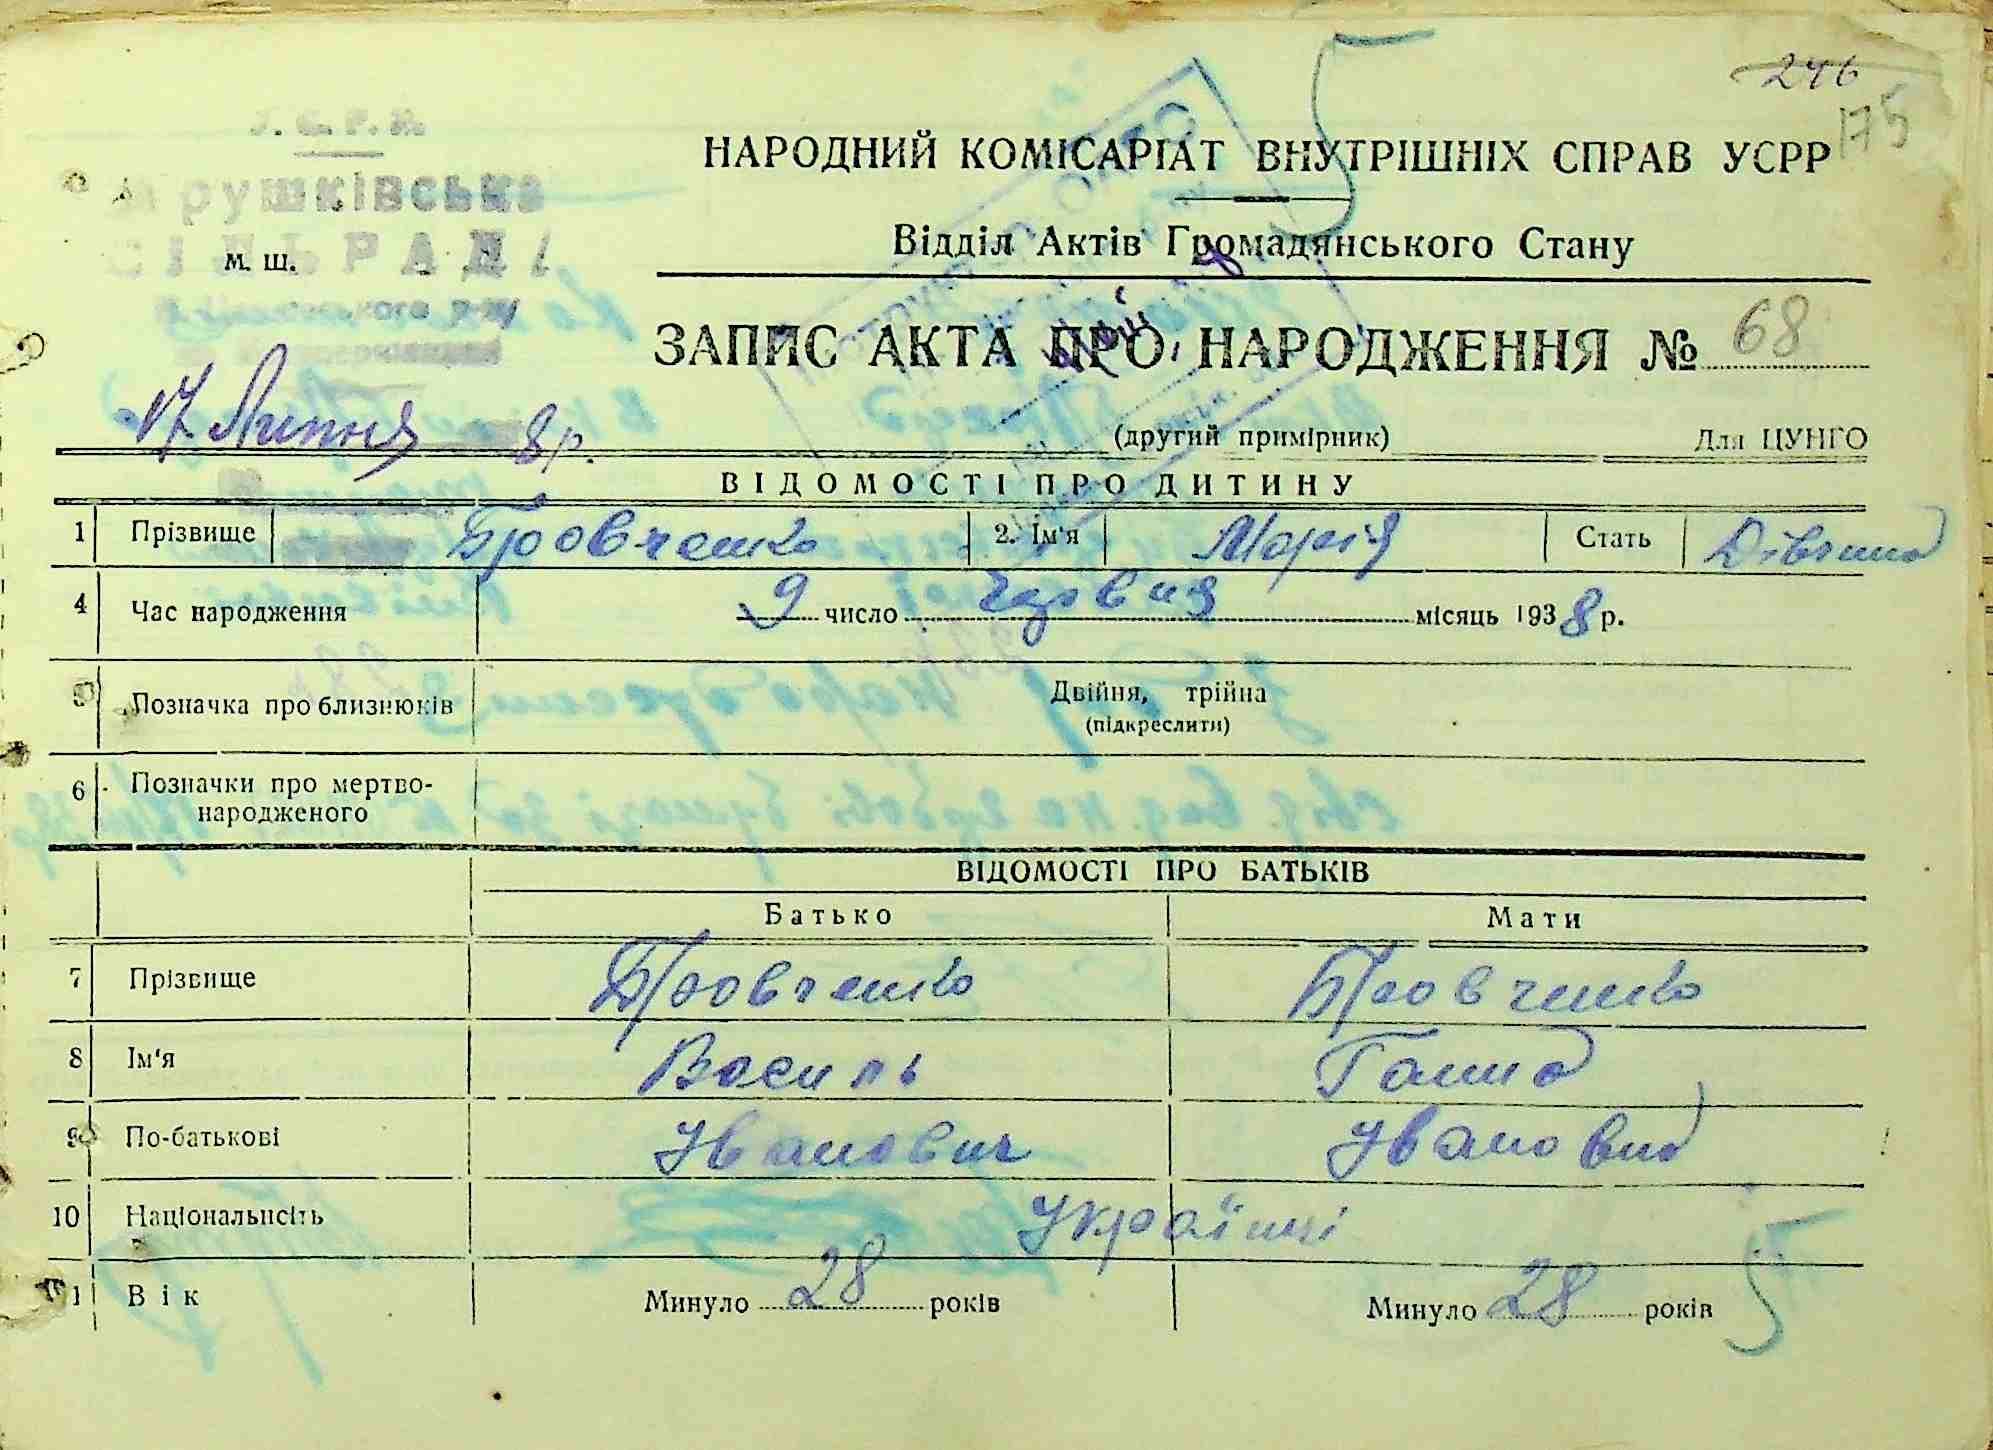 246
175
НАРОДНИЙ КОМІСАРІАТ ВНУТРІШНІХ СПРАВ УСРР
Відділ Актів Громадянського Стану
СІЛЬРАДА
м. ш.
ЗАПИС АКТА ПРО НАРОДЖЕННЯ № 68
17 Липня 8 р.
(другий примірник) Для ЦУНГО
ВІДОМОСТІ ПРО ДИТИНУ
1 Прізвище Бровченко 2. Ім'я Марія Стать Дівчина
4 Час народження 9 число Червня місяць 1938 р.
5 Позначка про близнюків Двійня, трійна
(підкреслити)
6 Позначки про мертво-
народженого
ВІДОМОСТІ ПРО БАТЬКІВ
Батько Мати
7 Прізвище Бровченко Бровченко
8 Ім'я Василь Ганна
9 По-батькові Іванович Івановна
10 Національність Українці
11 Вік Минуло 28 років Минуло 28 років
5